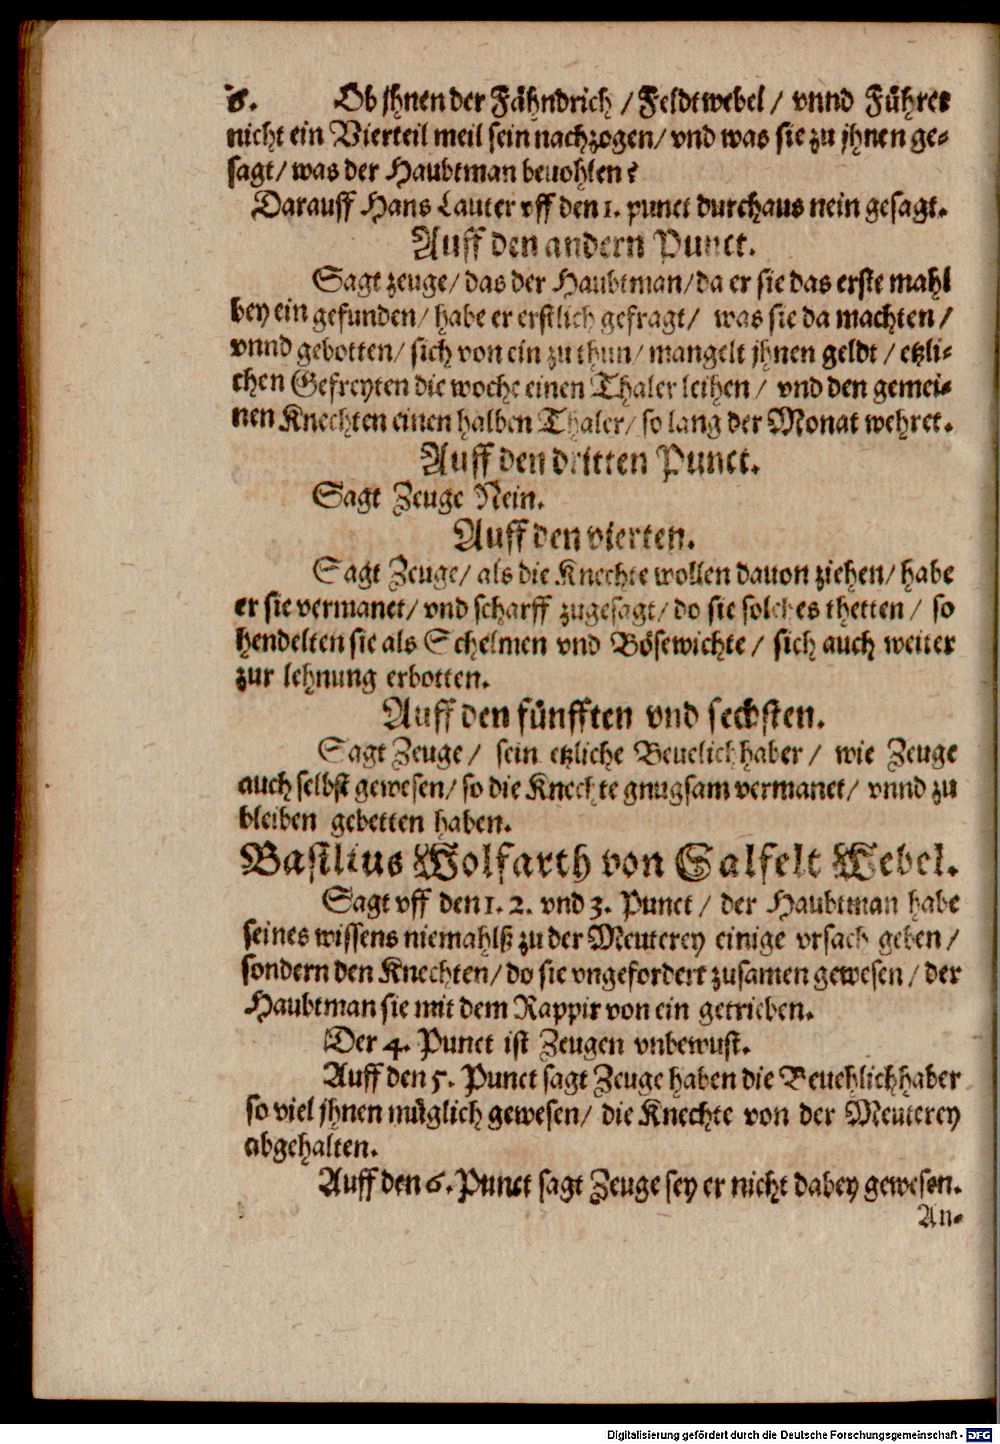 6. Ob jhnen der Fähndrich / Feldtwebel / vnnd Führer
nicht ein Vierteil meil sein nachzogen / vnd was sie zu jhnen ge-
sagt / was der Haubtman beuohlen?
Darauff Hans Lauter vff den 1. punct durchaus nein gesagt.
Auff den andern Punct.
Sagt zeuge / das der Haubtman / da er sie das erste mahl
bey ein gefunden / habe er erstlich gefragt / was sie da machten /
vnnd gebotten / sich von ein zu thun / mangelt jhnen geldt / etzli-
chen Gefreyten die woche einen Thaler leihen / vnd den gemei-
nen Knechten einen halben Thaler / so lang der Monat wehret.
Auff den dritten Punct.
Sagt Zeuge Nein.
Auff den vierten.
Sagt Zeuge / als die Knechte wollen dauon ziehen / habe
er sie vermanet / vnd scharff zugesagt / do sie solches thetten / so
hendelten sie als Schelmen vnd Bösewichte / sich auch weiter
zur lehnung erbotten.
Auff den fünfften vnd sechsten.
Sagt Zeuge / sein etzliche Beuelichhaber / wie Zeuge
auch selbst gewesen / so die Knechte gnugsam vermanet / vnnd zu
bleiben gebetten haben.
Basilius Wolfarth von Salfelt Webel.
Sagt vff den 1. 2. vnd 3. Punct / der Haubtman habe
seines wissens niemahlß zu der Meuterey einige vrsach geben /
sondern den Knechten / do sie vngefordert zusamen gewesen / der
Haubtman sie mit dem Rappir von ein getrieben.
Der 4. Punct ist Zeugen vnbewust.
Auff den 5. Punct sagt Zeuge haben die Beuehlichhaber
so viel jhnen müglich gewesen / die Knechte von der Meuterey
abgehalten.
Auff den 6. Punct sagt Zeuge sey er nicht dabey gewesen.
An-
Digitalisierung gefördert durch die Deutsche Forschungsgemeinschaft - DFG